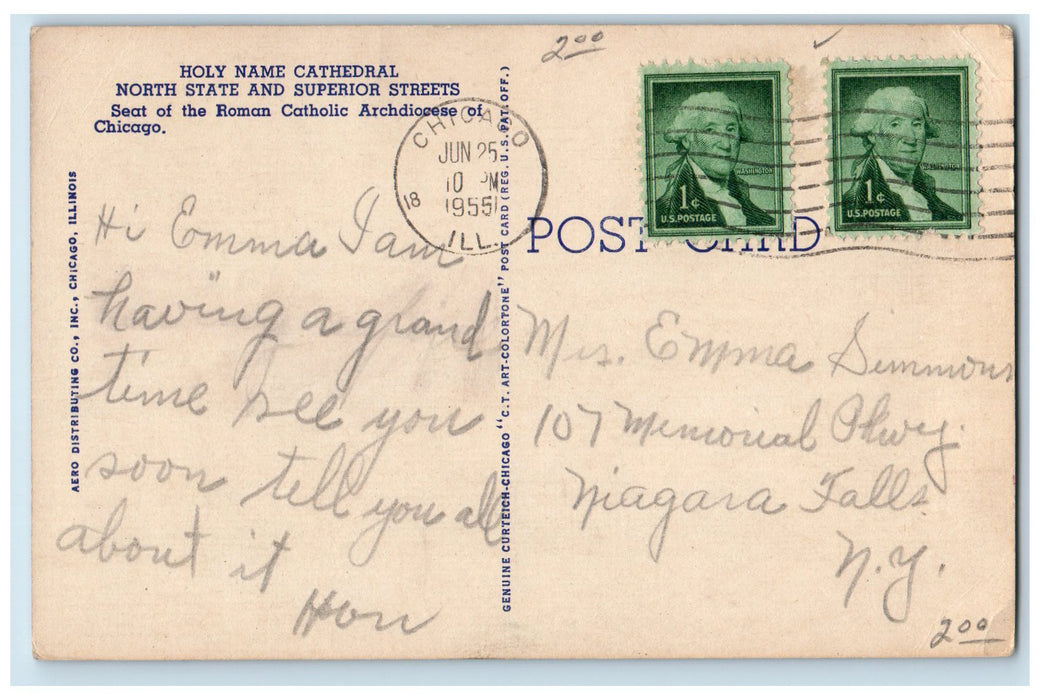 2⁰⁰
HOLY NAME CATHEDRAL
NORTH STATE AND SUPERIOR STREETS
Seat of the Roman Catholic Archdiocese of
Chicago.
CHICAGO
JUN 25
10 PM
18
1955
ILL.
1¢
WASHINGTON
U.S.POSTAGE
1¢
WASHINGTON
U.S.POSTAGE
POST CARD
AERO DISTRIBUTING CO., INC., CHICAGO, ILLINOIS
Hi Emma I am
having a grand
time see you
soon tell you all
about it
Hon
GENUINE CURTEICH-CHICAGO "C.T. ART-COLORTONE" POST CARD (REG. U.S. PAT. OFF.)
Mrs. Emma Simmons
107 Memorial Pkwy.
Niagara Falls
N.Y.
2⁰⁰